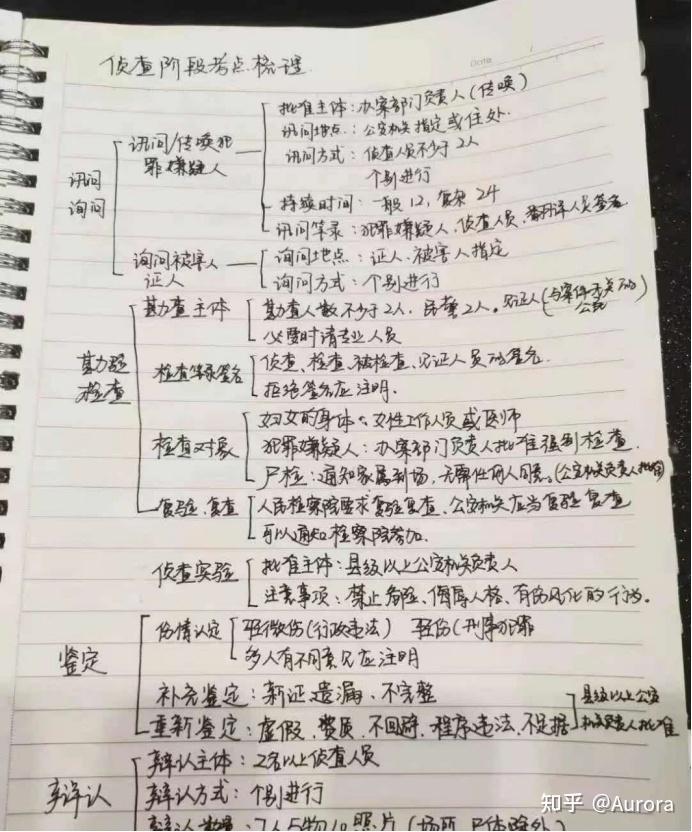 侦查阶段考点梳理
Date
讯问
询问
讯问/传唤犯
罪嫌疑人
批准主体：办案部门负责人(传唤)
讯问地点：公安机关指定或住处.
讯问方式：侦查人员不少于2人
个别进行
持续时间：一般12，复杂24
讯问笔录：犯罪嫌疑人，侦查人员，翻译人员签名
询问被害人
证人
询问地点：证人、被害人指定
询问方式：个别进行
勘验
检查
勘查主体
勘查人数不少于2人，民警2人。见证人(与案件无关的
公民)
必要时请专业人员
检查笔录签名
侦查、检查、被检查、见证人员的签名
拒绝签名应注明.
检查对象
妇女的身体：女性工作人员或医师
犯罪嫌疑人：办案部门负责人批准强制检查.
尸检：通知家属到场，无需任何人同意。(公安机关负责人批准)
复验、复查
人民检察院要求复验复查，公安机关应当复验复查
可以通知检察院参加.
侦查实验
批准主体：县级以上公安机关负责人
注意事项：禁止危险、侮辱人格、有伤风化的行为。
鉴定
伤情认定
轻微伤(行政违法) 轻伤(刑事犯罪
多人有不同意见应注明
补充鉴定：新证遗漏、不完整
重新鉴定：虚假、资质、不回避、程序违法、不足据
县级以上公安
机关负责人批准
辩认
辩认主体：2名以上侦查人员
辩认方式：个别进行
辩认数量：7人5物10照片(场所、尸体除外)
知乎 @Aurora